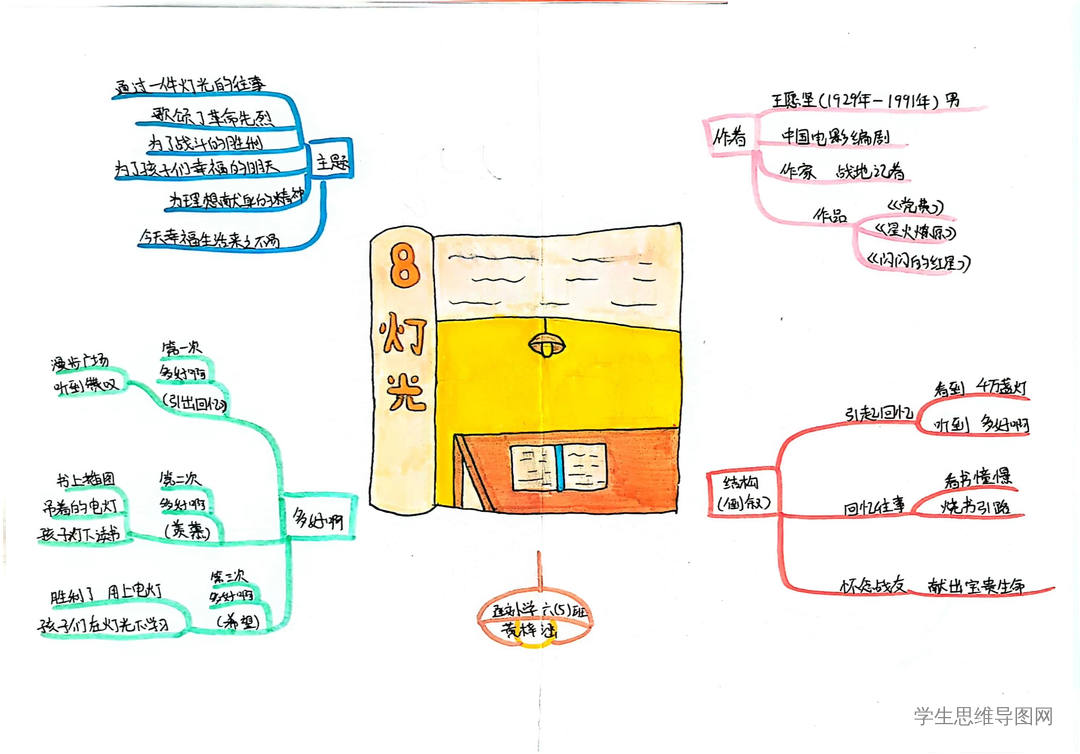 通过一件灯光的往事
歌颂了革命先烈
为了战斗的胜利
为了孩子们幸福的明天
为理想献身的精神
今天幸福生活来之不易
主题
作者
王愿坚(1929年-1991年) 男
中国电影编剧
作家 战地记者
作品
《党费》
《星火燎原》
《闪闪的红星》
8
灯
光
漫步广场
听到赞叹
第一次
多好啊
(引出回忆)
书上插图
吊着的电灯
孩子灯下读书
第二次
多好啊
(羡慕)
胜利了 用上电灯
孩子们在灯光下学习
第三次
多好啊
(希望)
多好啊
结构
(倒叙)
引起回忆
看到 4万盏灯
听到 多好啊
回忆往事
看书憧憬
烧书引路
怀念战友 献出宝贵生命
小学 六(5)班
黄梓涵
学生思维导图网